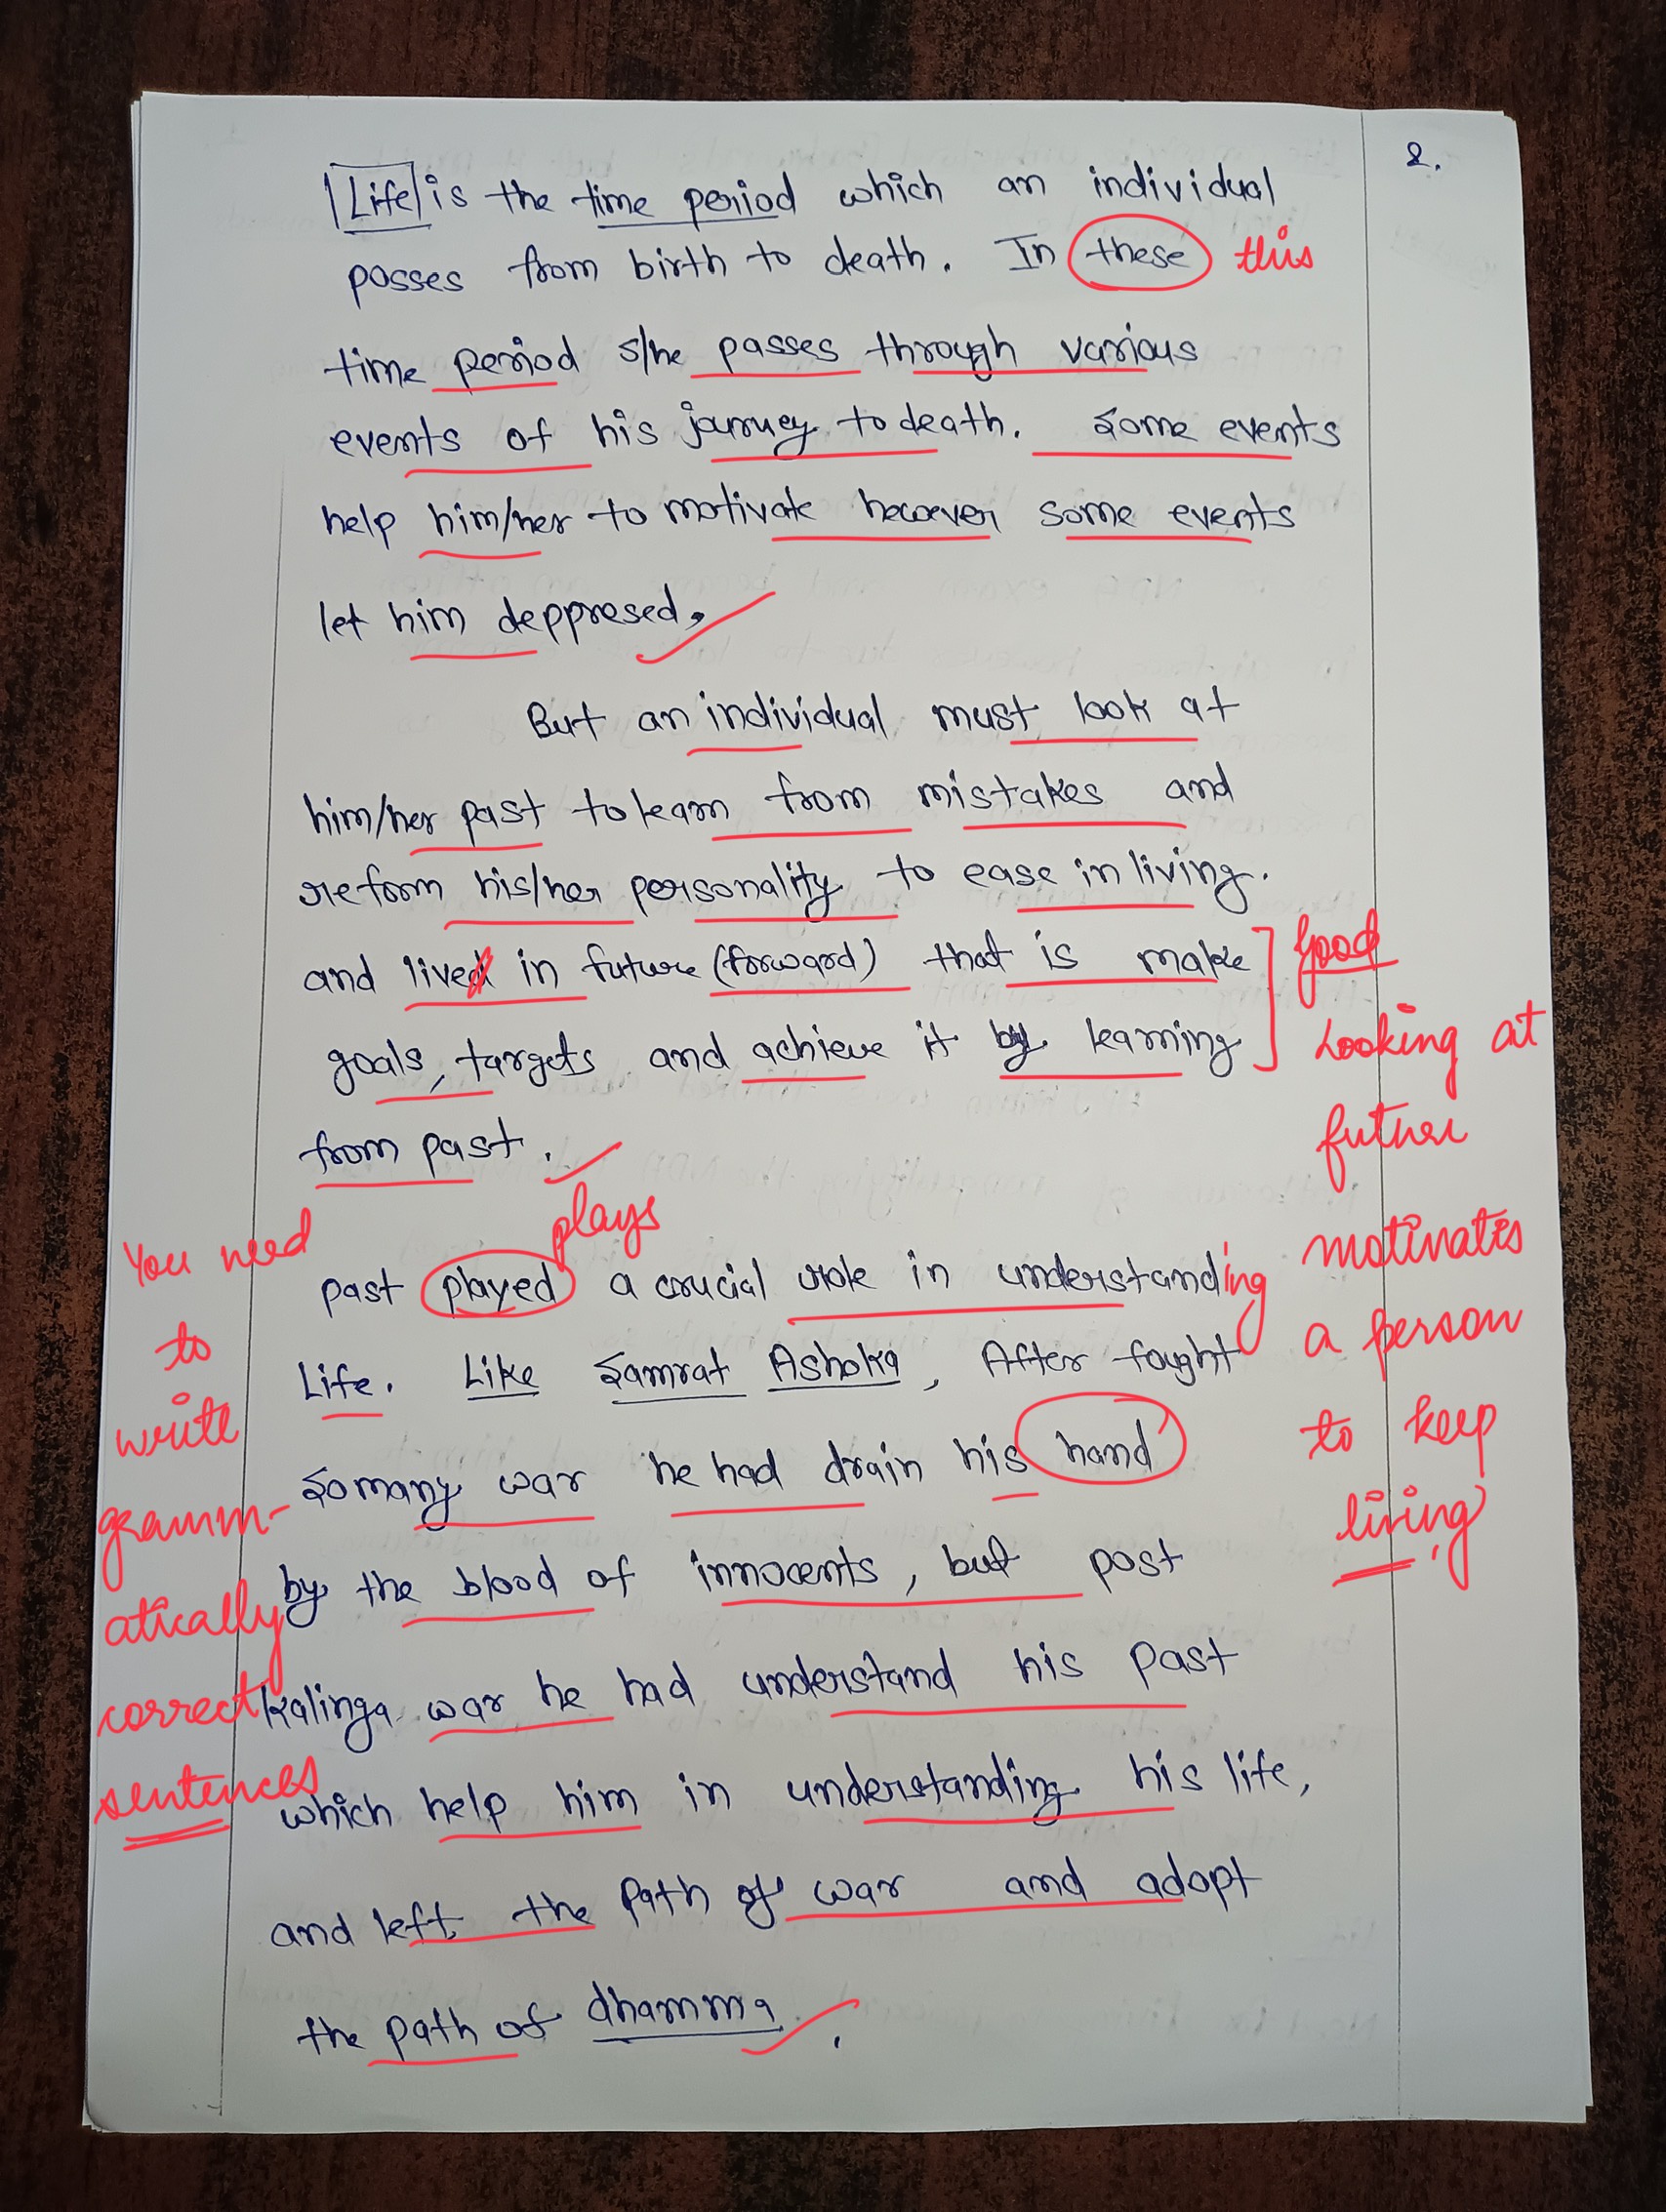 2.
Life is the time period which an individual
passes from birth to death. In these this
time period s/he passes through various
events of his jarruey to death. Some events
help him/her to motivate however some events
let him deppresed.
But an individual must look at
him/her past to learn from mistakes and
reform his/her personality to ease in living.
and lived in future (forward) that is make
goals, targets and achieve it by learning
from past.
Good
Looking at
future
motivates
a person
to keep
living
plays
past played a crucial role in understanding
Life. Like Samrat Ashoka, After fought
so many war he had drain his hand
by the blood of innocents, but post
Kalinga war he had understand his past
which help him in understanding his life,
and left the path of war and adopt
the path of dhamma.
You need
to
write
gramm-
atically
correct
sentences